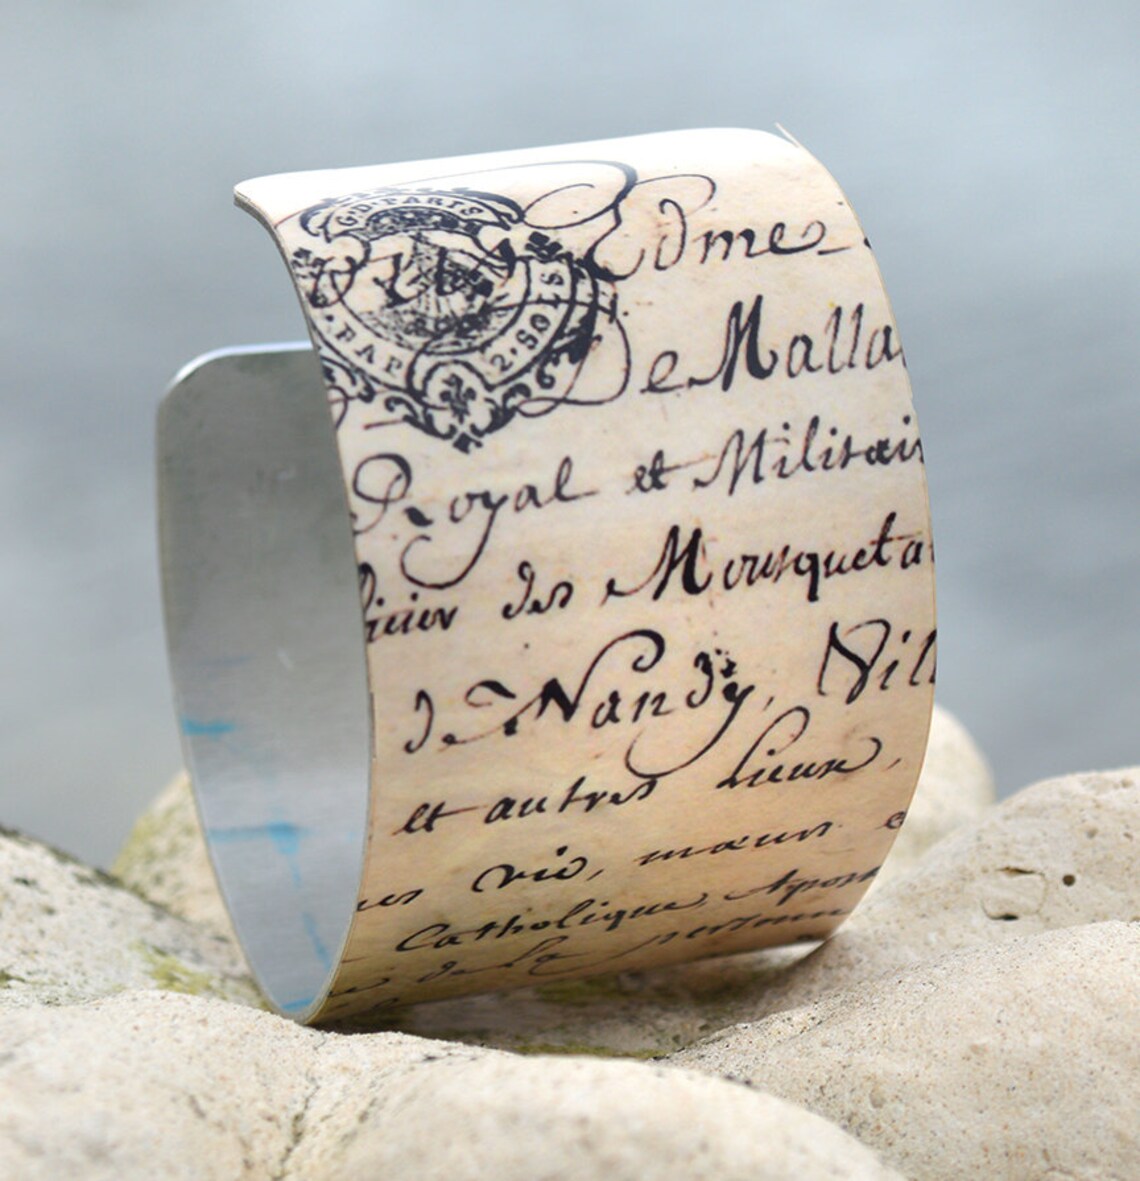 G.D. PARIS
PAP 2·SOLS
De Malla
Royal et Militair
des Mousqueta
de Nandy, Vil
et autres Lieux,
vie, mœurs e
Catholique Apost
de la